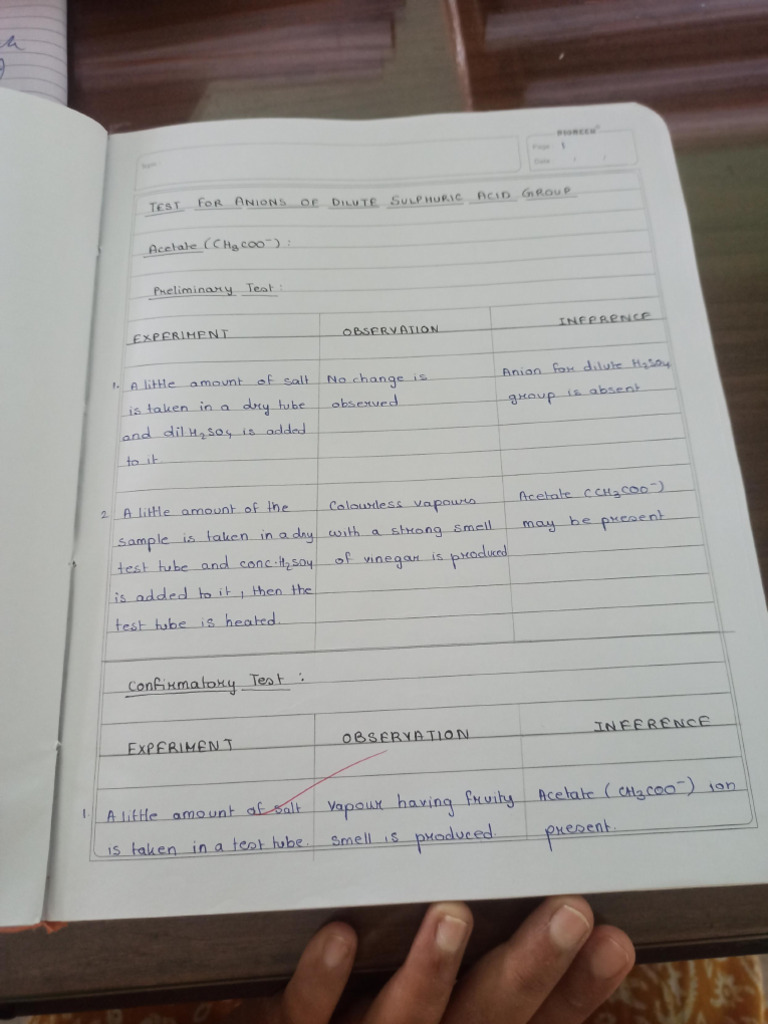 PIONEER
Page 1
Date / /
TEST FOR ANIONS OF DILUTE SULPHURIC ACID GROUP
Acetate (CH3COO⁻) :
Preliminary Test :
EXPERIMENT OBSERVATION INFERENCE
1. A little amount of salt No change is Anion for dilute H2SO4
is taken in a dry tube observed group is absent
and dil H2SO4 is added
to it
2 A little amount of the Colourless vapours Acetate (CH3COO⁻)
sample is taken in a dry with a strong smell may be present
test tube and conc. H2SO4 of vinegar is produced
is added to it, then the
test tube is heated.
Confirmatory Test :
EXPERIMENT OBSERVATION INFERENCE
1. A little amount of salt Vapour having fruity Acetate (CH3COO⁻) ion
is taken in a test tube. smell is produced. present.